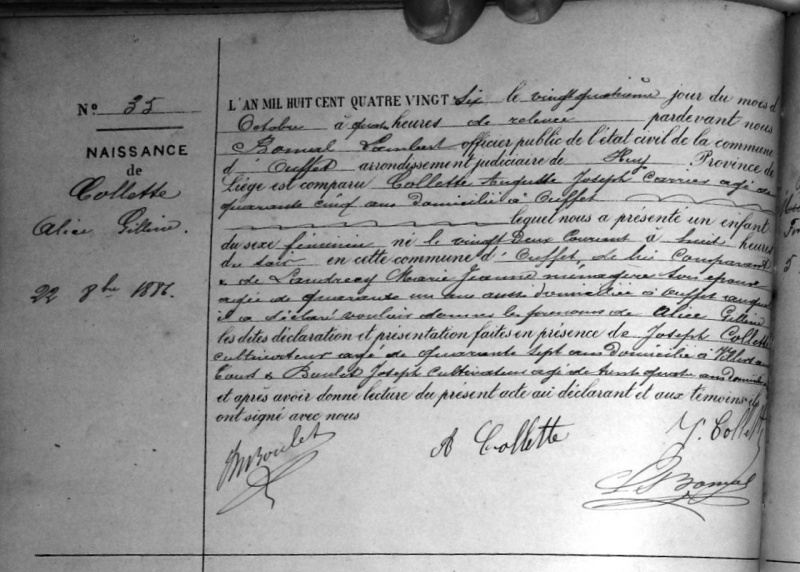 N° 35
NAISSANCE
de
Collette
Alice Gilline.
22 8bre 1886.
L'AN MIL HUIT CENT QUATRE VINGT six le vingt quatrième jour du mois d
Octobre à quatre heures de relevée pardevant nous
Bonmal Lambert officier public de l'état civil de la commune
d' Ouffet arrondissement judiciaire de Huy Province de
Liège est comparu Collette Auguste Joseph Carrier agé de
quarante cinq ans domicilié à Ouffet
lequel nous a présenté un enfant
du sexe féminin né le vingt Deux Courant à huit heures
du soir en cette commune d' Ouffet, de lui Comparant
& de Marie Jeanne ménagère son épouse
agée de quarante un ans aussi domiciliée à Ouffet auquel
il a déclaré vouloir donner les prénoms de Alice Gilline
les dites déclaration et présentation faites en présence de Joseph Collette
cultivateur agé de quarante sept ans domicilié à
& Boulet Joseph Cultivateur agé de trente quatre ans
et après avoir donné lecture du présent acte au déclarant et aux témoins ils
ont signé avec nous
Boulet
A Collette
J. Collette
L Bonmal
5